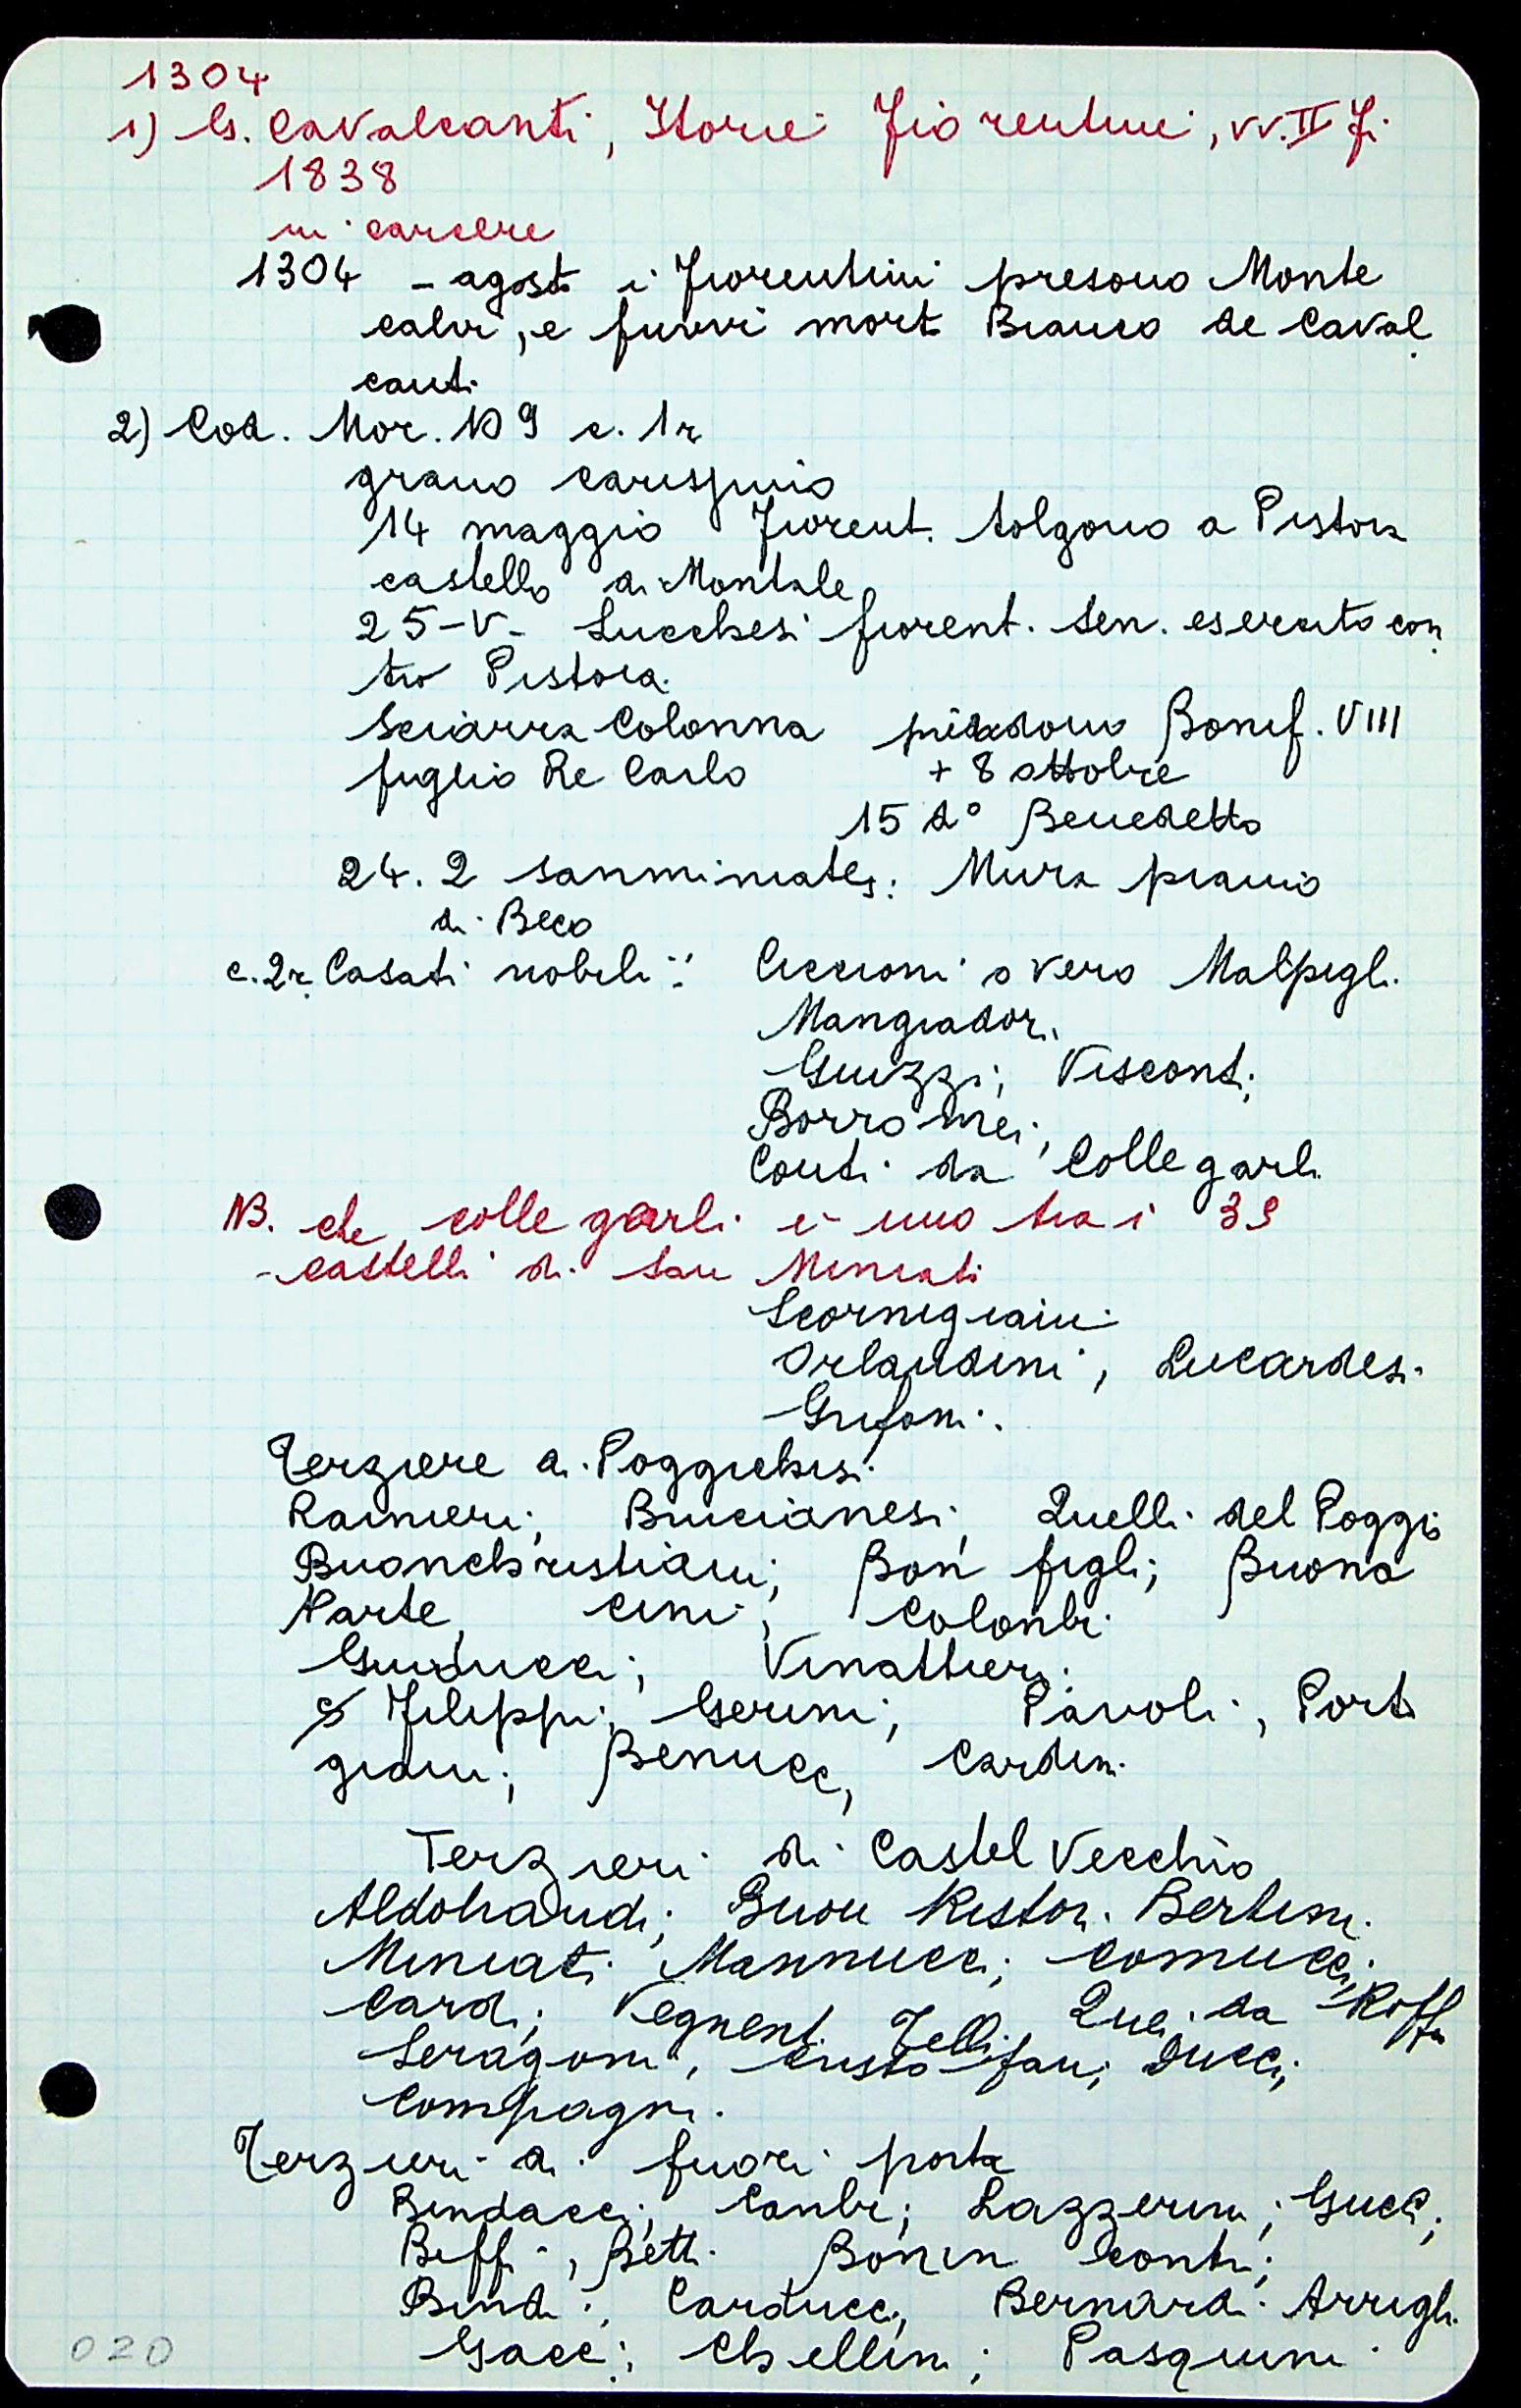 1304
1) G. Cavalcanti, Storie Fiorentine, vv. II Fi
1838
in carcere
1304 - agosto i Fiorentini presono Monte
calvi, e furvi morto Bianco de Caval
canti
2) Cod. Mor. 109 c. 1r
grano carissimo
14 maggio Fiorent. tolgono a Pistoia
castello di Montale
25-V- Lucchesi fiorent. sen. esercito con
tro Pistoia.
Sciarra Colonna Bonif. VIII
figlio Re Carlo + 8 ottobre
15 do Benedetto
24. 2 sanminiates: Mura piano
di Beco
c. 2r. Casati nobili: Ciccioni o vero Malpigli.
Mangiadori
Guizzi; Visconti;
Borromei;
Conti da Collegarli
NB. che colle garli è uno tra i 39
castelli di San Miniati
Scornigiani
Orlandini, Lucardesi
Grifoni.
Terziere di Poggichisi
Ranieri; Brucianesi, Quelli del Poggio
Buonchristiani; Bon figli; Buona
Parte, Cini, Colonbi
Guiducci; Vinattieri;
Filippi; Gerini; Pavoli, Porti
giani; Benucc, Cardini
Terzieri di Castel Vecchio
Aldobrandi; Buon Ristori. Bertini.
Miniati Mannucci; Comucci;
Cardi; Vegnenti Telli Quei da Roffia
Seragoni, Cristofani; Ducci;
Compagni.
Terzieri di fuori porta
Bindacci; Canbi; Lazzerini; Gucci;
Buffi, Betti Bonin conti;
Bindi; Carducci, Bernardi Arrighi
Gacci; Chellini; Pasquini
020